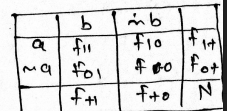 b ~b
a f11 f10 f1+
~a f01 f00 f0+
f+1 f+0 N